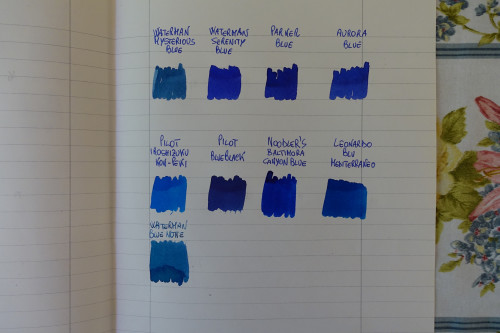 WATERMAN WATERMAN PARKER AURORA
MYSTERIOUS SERENITY BLUE BLUE
BLUE BLUE
PILOT PILOT NOODLER'S LEONARDO
IROSHIZUKU BLUEBLACK BALTIMORA BLU
KON-PEKI CANYON BLUE MEDITERRANEO
WATERMAN
BLUE NOTE